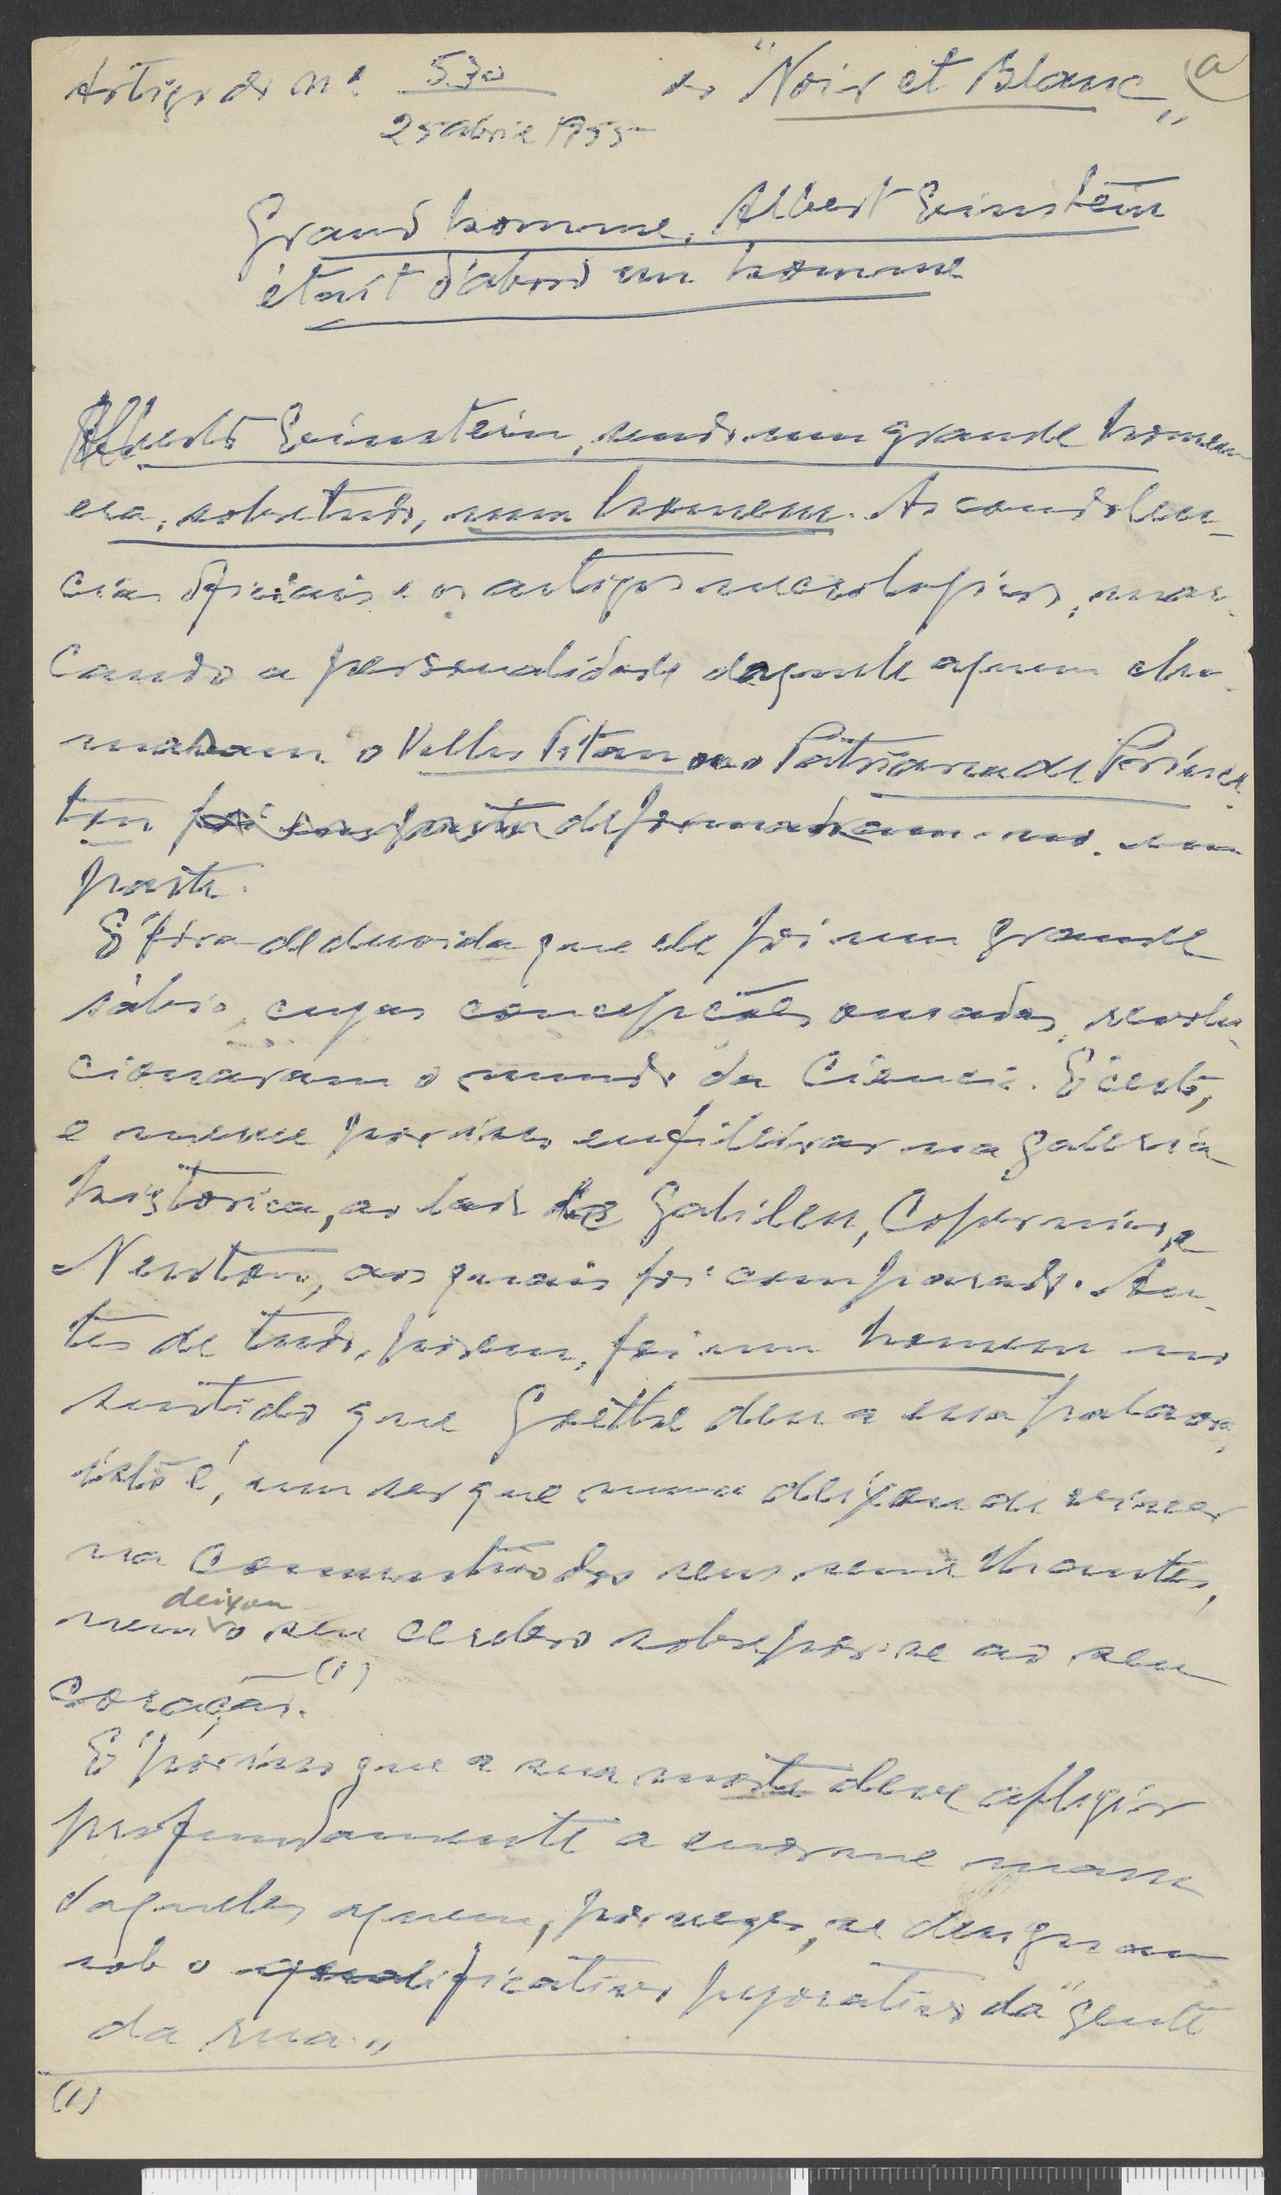 Artigo do nº 530 do "Noir et Blanc„ a
25 abril 1955
Grand homme, Albert Einstein
était d'abord un homme
Alberto Einstein, sendo um grande homem
era, sobretudo, um homem. As condolen-
cias oficiais e os artigos necrologicos, mar-
cando a personalidade daquele a quem cha-
mavam o Velho Titan ou o Patriarca de Prince-
ton foi em parte deformaram-no, em
parte.
É fóra de duvida que ele foi um grande
sábio, cujas concepções ousadas, revolu-
cionaram o mundo da Ciencia. É certo,
e merece por isso enfileirar na galeria
historica, ao lado de Galileu, Copernico, e
Newton, aos quais foi comparado. An-
tes de tudo, porem, foi um homem no
sentido que Goethe deu a essa palavra,
isto é, um ser que nunca deixou de viver
na comunhão dos seus semelhantes,
deixou
nem o seu cerebro sobrepôr-se ao seu
coração. (1)
É por isso que a sua morte deve afligir
profundamente a enorme massa
daqueles a quem, por vezes, se designam
sob o qualificativo pejorativo da "gente
da rua„
(1)